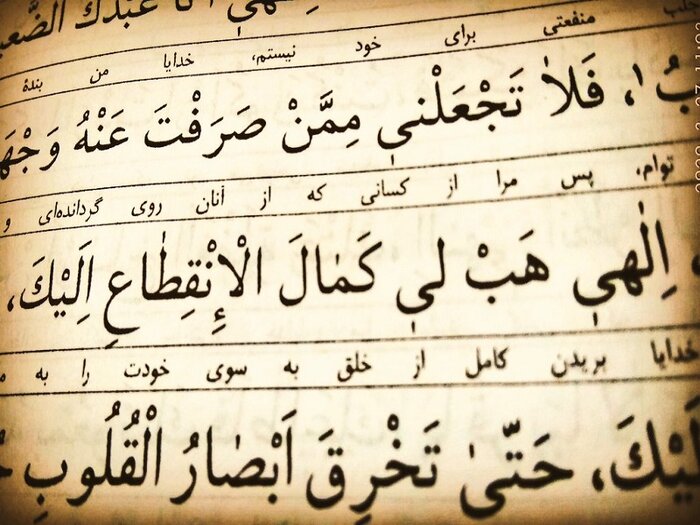 اَنَا عَبْدُكَ الضَّعیفُ
منفعتی برای خود نیستم، خدایا من بندهٔ
فَلاٰ تَجْعَلْنیٖ مِمَّنْ صَرَفْتَ عَنْهُ وَجْهَ
توام. پس مرا از کسانی که از آنان روی گردانده‌ای و
اِلٰهیٖ هَبْ لیٖ کَمٰالَ الْاِنْقِطٰاعِ اِلَیْکَ،
خدایا بریدن کامل از خلق به سوی خودت را به
حَتّیٰ تَخْرِقَ اَبْصٰارُ الْقُلُوبِ